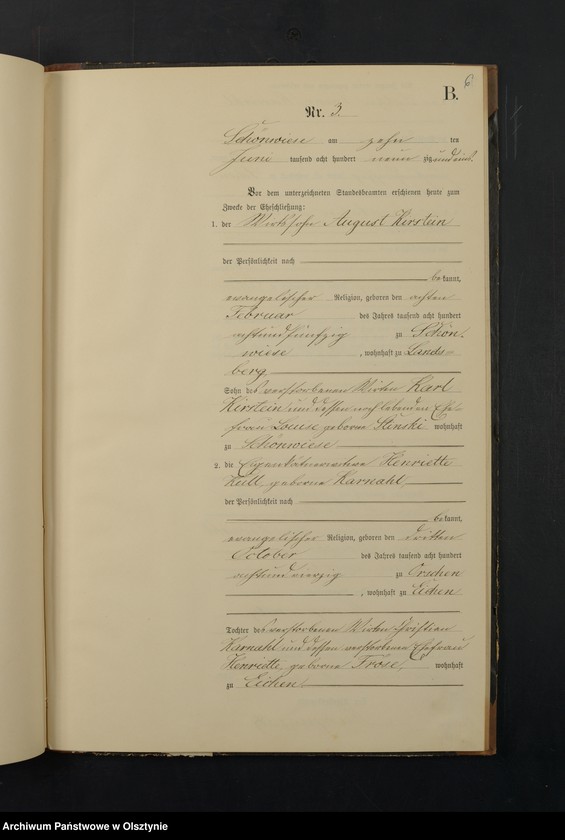 6
B.
Nr. 3.
Schönwiese am zehn ten
Juni tausend acht hundert neun zig und eins.
Vor dem unterzeichneten Standesbeamten erschienen heute zum
Zwecke der Eheschließung:
1. der Wirthssohn August Kirstein
der Persönlichkeit nach
bekannt,
evangelischer Religion, geboren den achten
Februar des Jahres tausend acht hundert
achtundfünfzig zu Schön-
wiese, wohnhaft zu Lands-
berg
Sohn des verstorbenen Wirten Karl
Kirstein und dessen noch lebenden Ehe-
frau Louise geborne Stinski wohnhaft
zu Schönwiese
2. die Henriette
Hill, geborne Karnahl,
der Persönlichkeit nach
bekannt,
evangelischer Religion, geboren den dritten
October des Jahres tausend acht hundert
achtundvierzig zu Orschen
, wohnhaft zu Eichen
Tochter des verstorbenen Wirten Christian
Karnahl und dessen verstorbenen Ehefrau
Henriette, geborne Trose, wohnhaft
zu Eichen
Archiwum Państwowe w Olsztynie